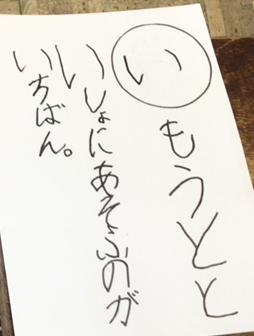 いもうとと
いしょにあそふのが
いちばん。